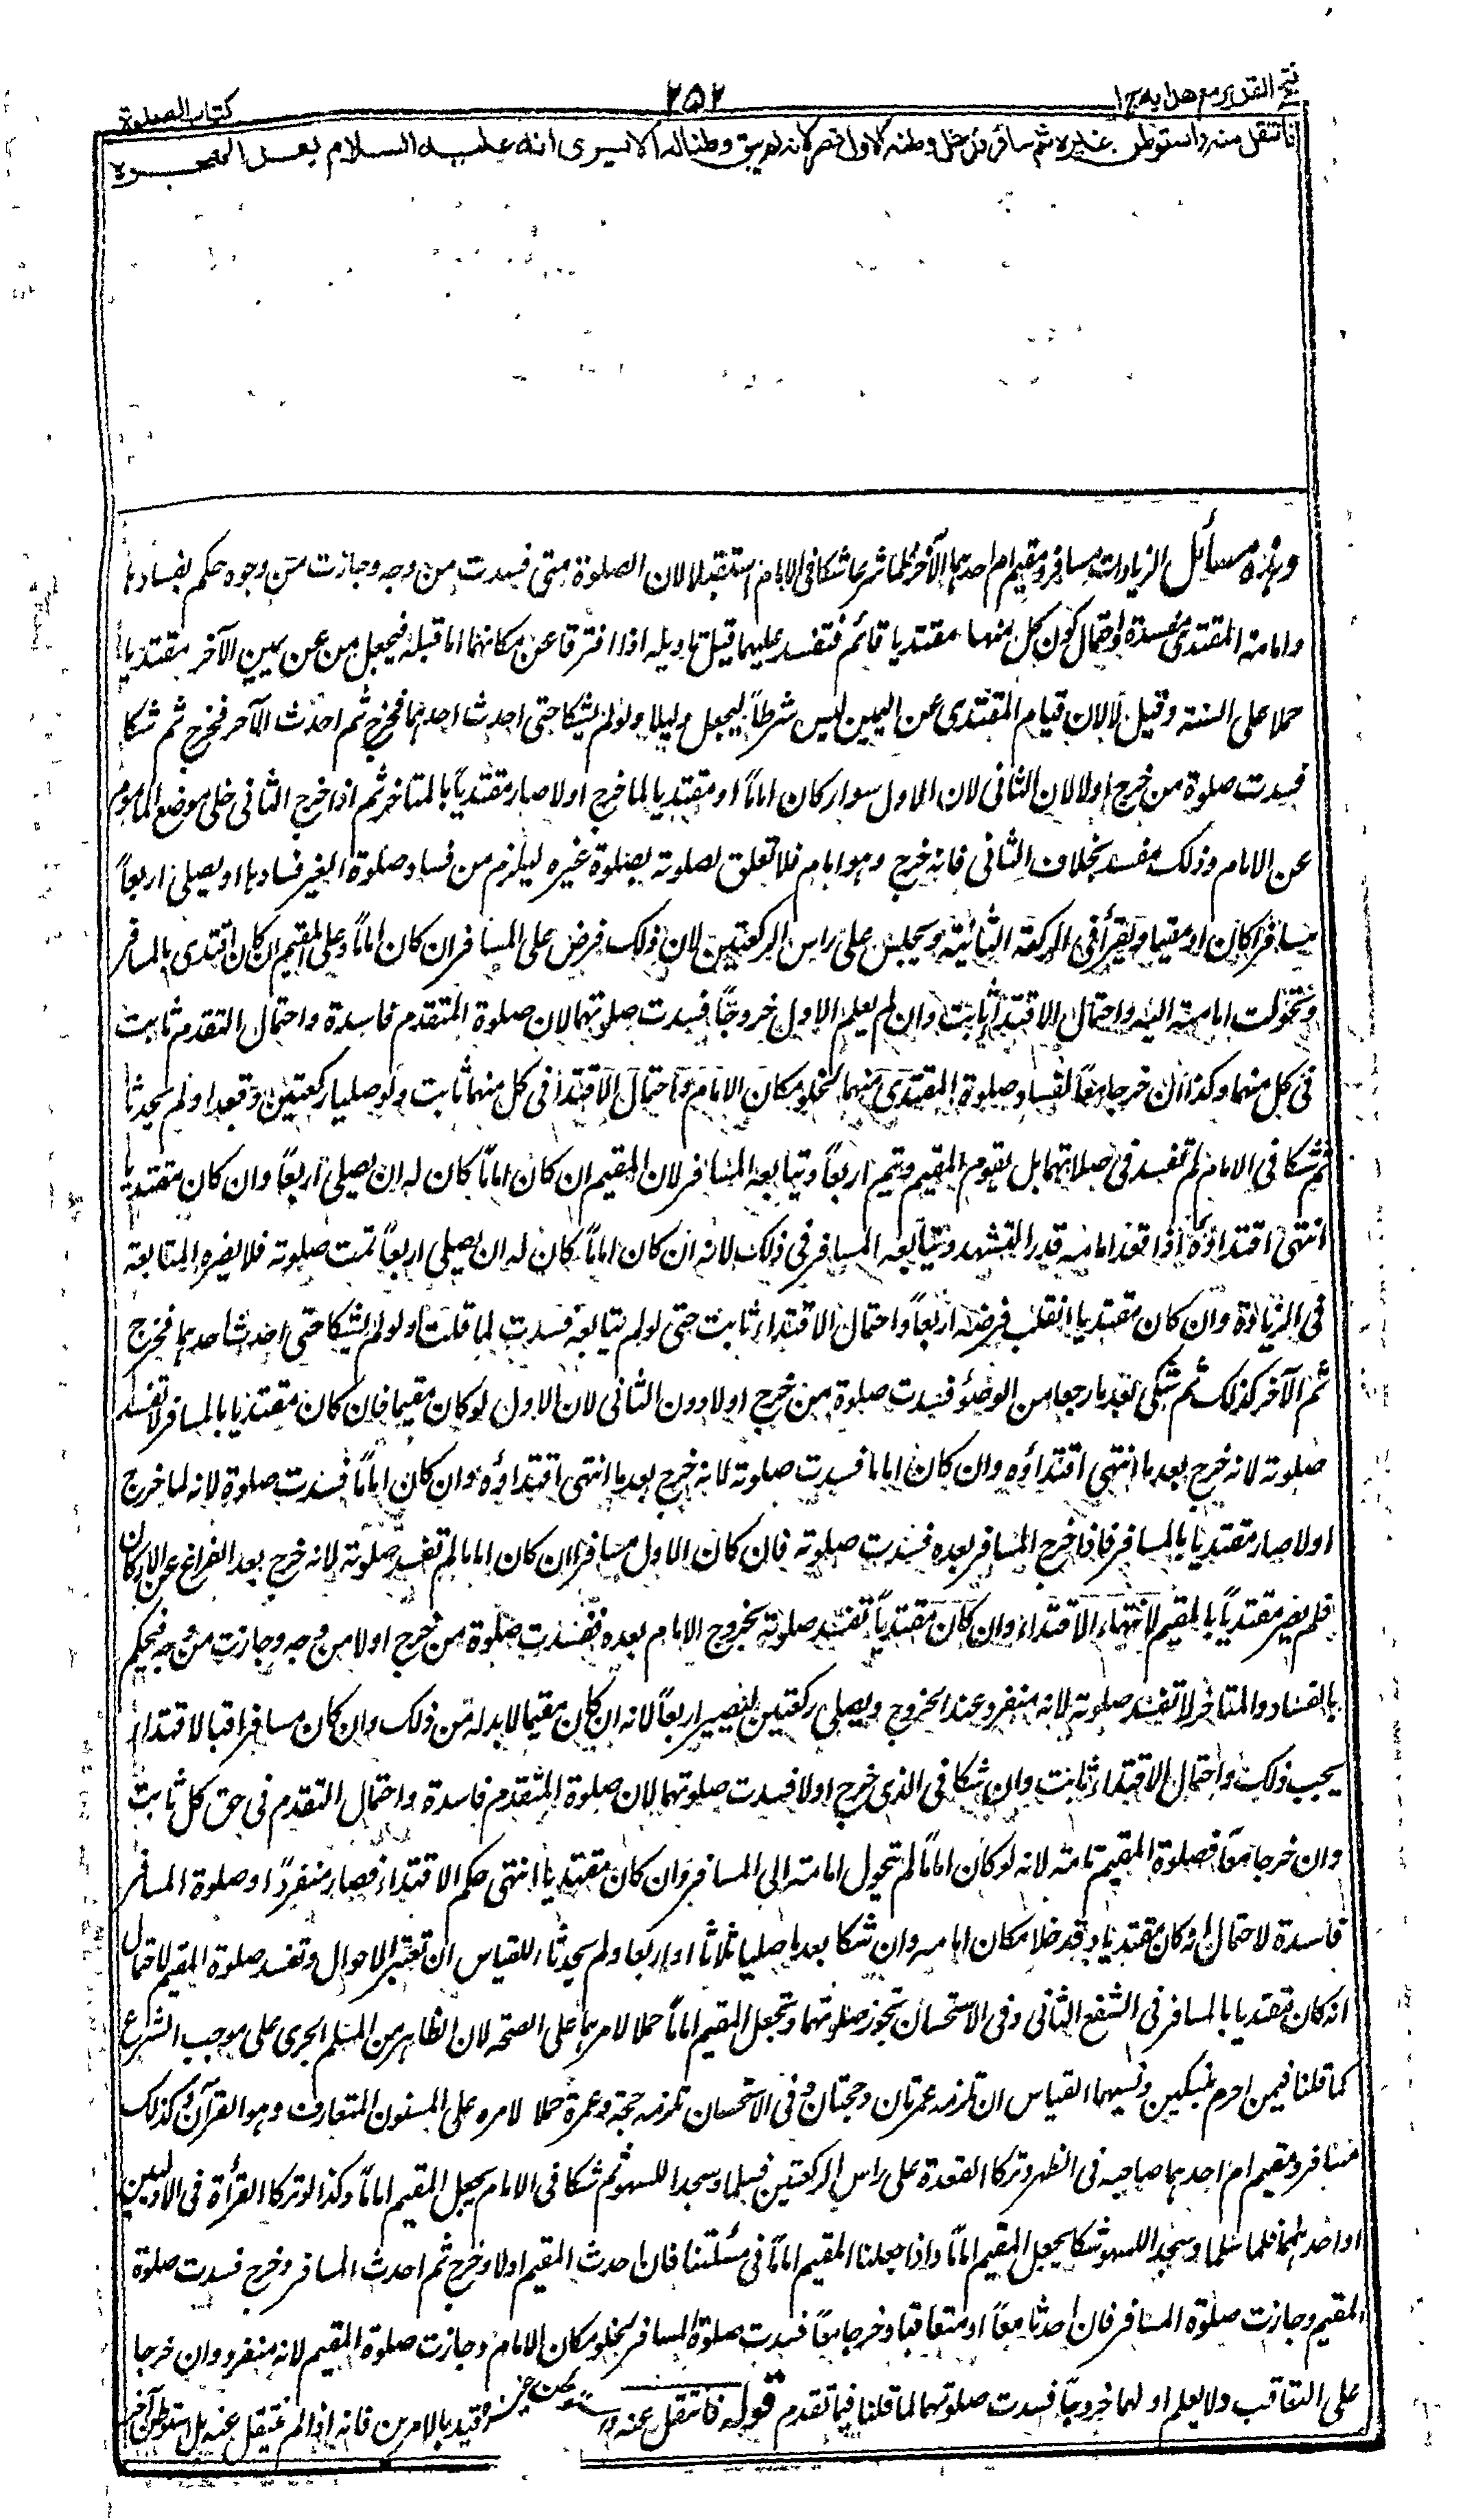 فتح القدير مع هدايه ج ا
٢٥٢
كتاب الصلوة
فانتقل منه واستوطن غيره ثم سافر فدخل وطنه الاول قصر لانه لم يبق وطنا له الا يرى انه عليه السلام بعد الهجرة
وهذه مسائل الزيادات مسافر ومقيم ام احدهما الآخر فلما شرعا شكا فى الامام استقبلا لان الصلوة متى فسدت من وجه وجازت من وجوه حكم بفسادها
وامامة المقتدى مفسدة واحتمال كون كل منهما مقتديا قائم فتفسد عليهما قيل تاويله اذا افترقا عن مكانهما اما قبله فيجعل من عن يمين الآخر مقتديا
حملا على السنة وقيل لا لان قيام المقتدى عن اليمين ليس شرطاً ليجعل دليلا ولو لم يشكا حتى احدث احدهما فخرج ثم احدث الآخر فخرج ثم شكا
فسدت صلوة من خرج اولا لان الثانى لان الاول سواء كان اماماً او مقتديا لما خرج اولا صار مقتدياً بالمتاخر ثم اذا خرج الثانى خلى موضع الماموم
عن الامام وذلك مفسد بخلاف الثانى فانه خرج وهو امام فلا تعلق لصلوته بصلوة غيره ليلزم من فساد صلوة الغير فسادها ويصلى اربعاً
مسافرا كان او مقيما ويقرأ فى الركعة الثانية ويجلس على راس الركعتين لان ذلك فرض على المسافر ان كان اماماً وعلى المقيم ان كان اقتدى بالمسافر
وتحولت امامته اليه واحتمال الاقتداء ثابت وان لم يعلم الاول خروجاً فسدت صلوتهما لان صلوة المتقدم فاسدة واحتمال التقدم ثابت
فى كل منهما وكذا ان خرجا معاً لفساد صلوة المقتدى منهما لخلو مكان الامام واحتمال الاقتدا فى كل منهما ثابت ولو صليا ركعتين وقعدا ولم يحدثا
ثم شكا فى الامام لم تفسد فى صلاتهما بل يقوم المقيم ويتم اربعاً ويتابعه المسافر لان المقيم ان كان اماماً كان له ان يصلى اربعاً وان كان مقتديا
انتهى اقتداؤه اذا قعد امامه قدر التشهد ويتابعه المسافر فى ذلك لانه ان كان اماماً كان له ان يصلى اربعاً تمت صلوته فلا يضره المتابعة
فى الزيادة وان كان مقتديا انقلب فرضه اربعاً واحتمال الاقتداء ثابت حتى لو لم يتابعه فسدت لما قلت ولو لم يشكا حتى احدث احدهما فخرج
ثم الآخر كذلك ثم شكى بعد ما رجعا من الوضؤ فسدت صلوة من خرج اولا دون الثانى لان الاول لو كان مقيما فان كان مقتديا بالمسافر لا تفسد
صلوته لانه خرج بعد ما انتهى اقتداؤه وان كان اماما فسدت صلوته لانه خرج بعد ما انتهى اقتداؤه وان كان اماماً فسدت صلوة لانه لما خرج
اولا صار مقتديا بالمسافر فاذا خرج المسافر بعده فسدت صلوته فان كان الاول مسافرا ان كان اماما لم تفسد صلوته لانه خرج بعد الفراغ عن الاركان
فلم يصر مقتدياً بالمقيم لانتهاء الاقتداء وان كان مقتدياً تفسد صلوته بخروج الامام بعده ففسدت صلوة من خرج اولا من وجه وجازت من وجه فيحكم
بالفساد والمتاخر لا تفسد صلوته لانه منفرد عند الخروج ويصلى ركعتين ليصير اربعاً لانه ان كان مقيما لابد له من ذلك وان كان مسافرا فبالاقتداء
يجب ذلك واحتمال الاقتداء ثابت وان شكا فى الذى خرج اولا فسدت صلوتهما لان صلوة المتقدم فاسدة واحتمال التقدم فى حق كل ثابت
وان خرجا معاً فصلوة المقيم تامة لانه لو كان اماماً لم تتحول امامته الى المسافر وان كان مقتديا انتهى حكم الاقتداء فصار منفرداً وصلوة المسافر
فاسدة لاحتمال انه كان مقتديا وقد خلا مكان امامه وان شكا بعد ما صليا ثلاثا او اربعا ولم يحدثا القياس ان تعتبر الاحوال وتفسد صلوة المقيم لاحتمال
انه كان مقتديا بالمسافر فى الشفع الثانى وفى الاستحسان تجوز صلوتهما وتجعل المقيم اماماً حملا لامرهما على الصحة لان الظاهر من المسلم الجرى على موجب الشرع
كما قلنا فيمن احرم بنسكين ونسيهما القياس ان تلزمه عمرتان وحجتان وفى الاستحسان تلزمه حجة وعمرة حملا لامره على المسنون المتعارف وهو القرآن وكذلك
مسافر ومقيم ام احدهما صاحبه فى الظهر وتركا القعدة على راس الركعتين فسلما وسجدا للسهو ثم شكا فى الامام يجعل المقيم اماماً وكذا لو تركا القرأة فى الاوليين
او احدهما فلما سلما وسجدا للسهو شكا يجعل المقيم اماماً واذا جعلنا المقيم اماماً فى مسئلتنا فان احدث المقيم اولا وخرج ثم احدث المسافر وخرج فسدت صلوة
المقيم وجازت صلوة المسافر فان احدثا معاً او متعاقبا وخرجا معاً فسدت صلوة المسافر لخلو مكان الامام وجازت صلوة المقيم لانه منفرد وان خرجا
على التعاقب ولا يعلم اولهما خروجاً فسدت صلوتهما لما قلنا فيما تقدم قوله فانتقل عنه واستوطن غيره قيد بالامرين فانه اذا لم ينتقل عنه بل استوطن آخر